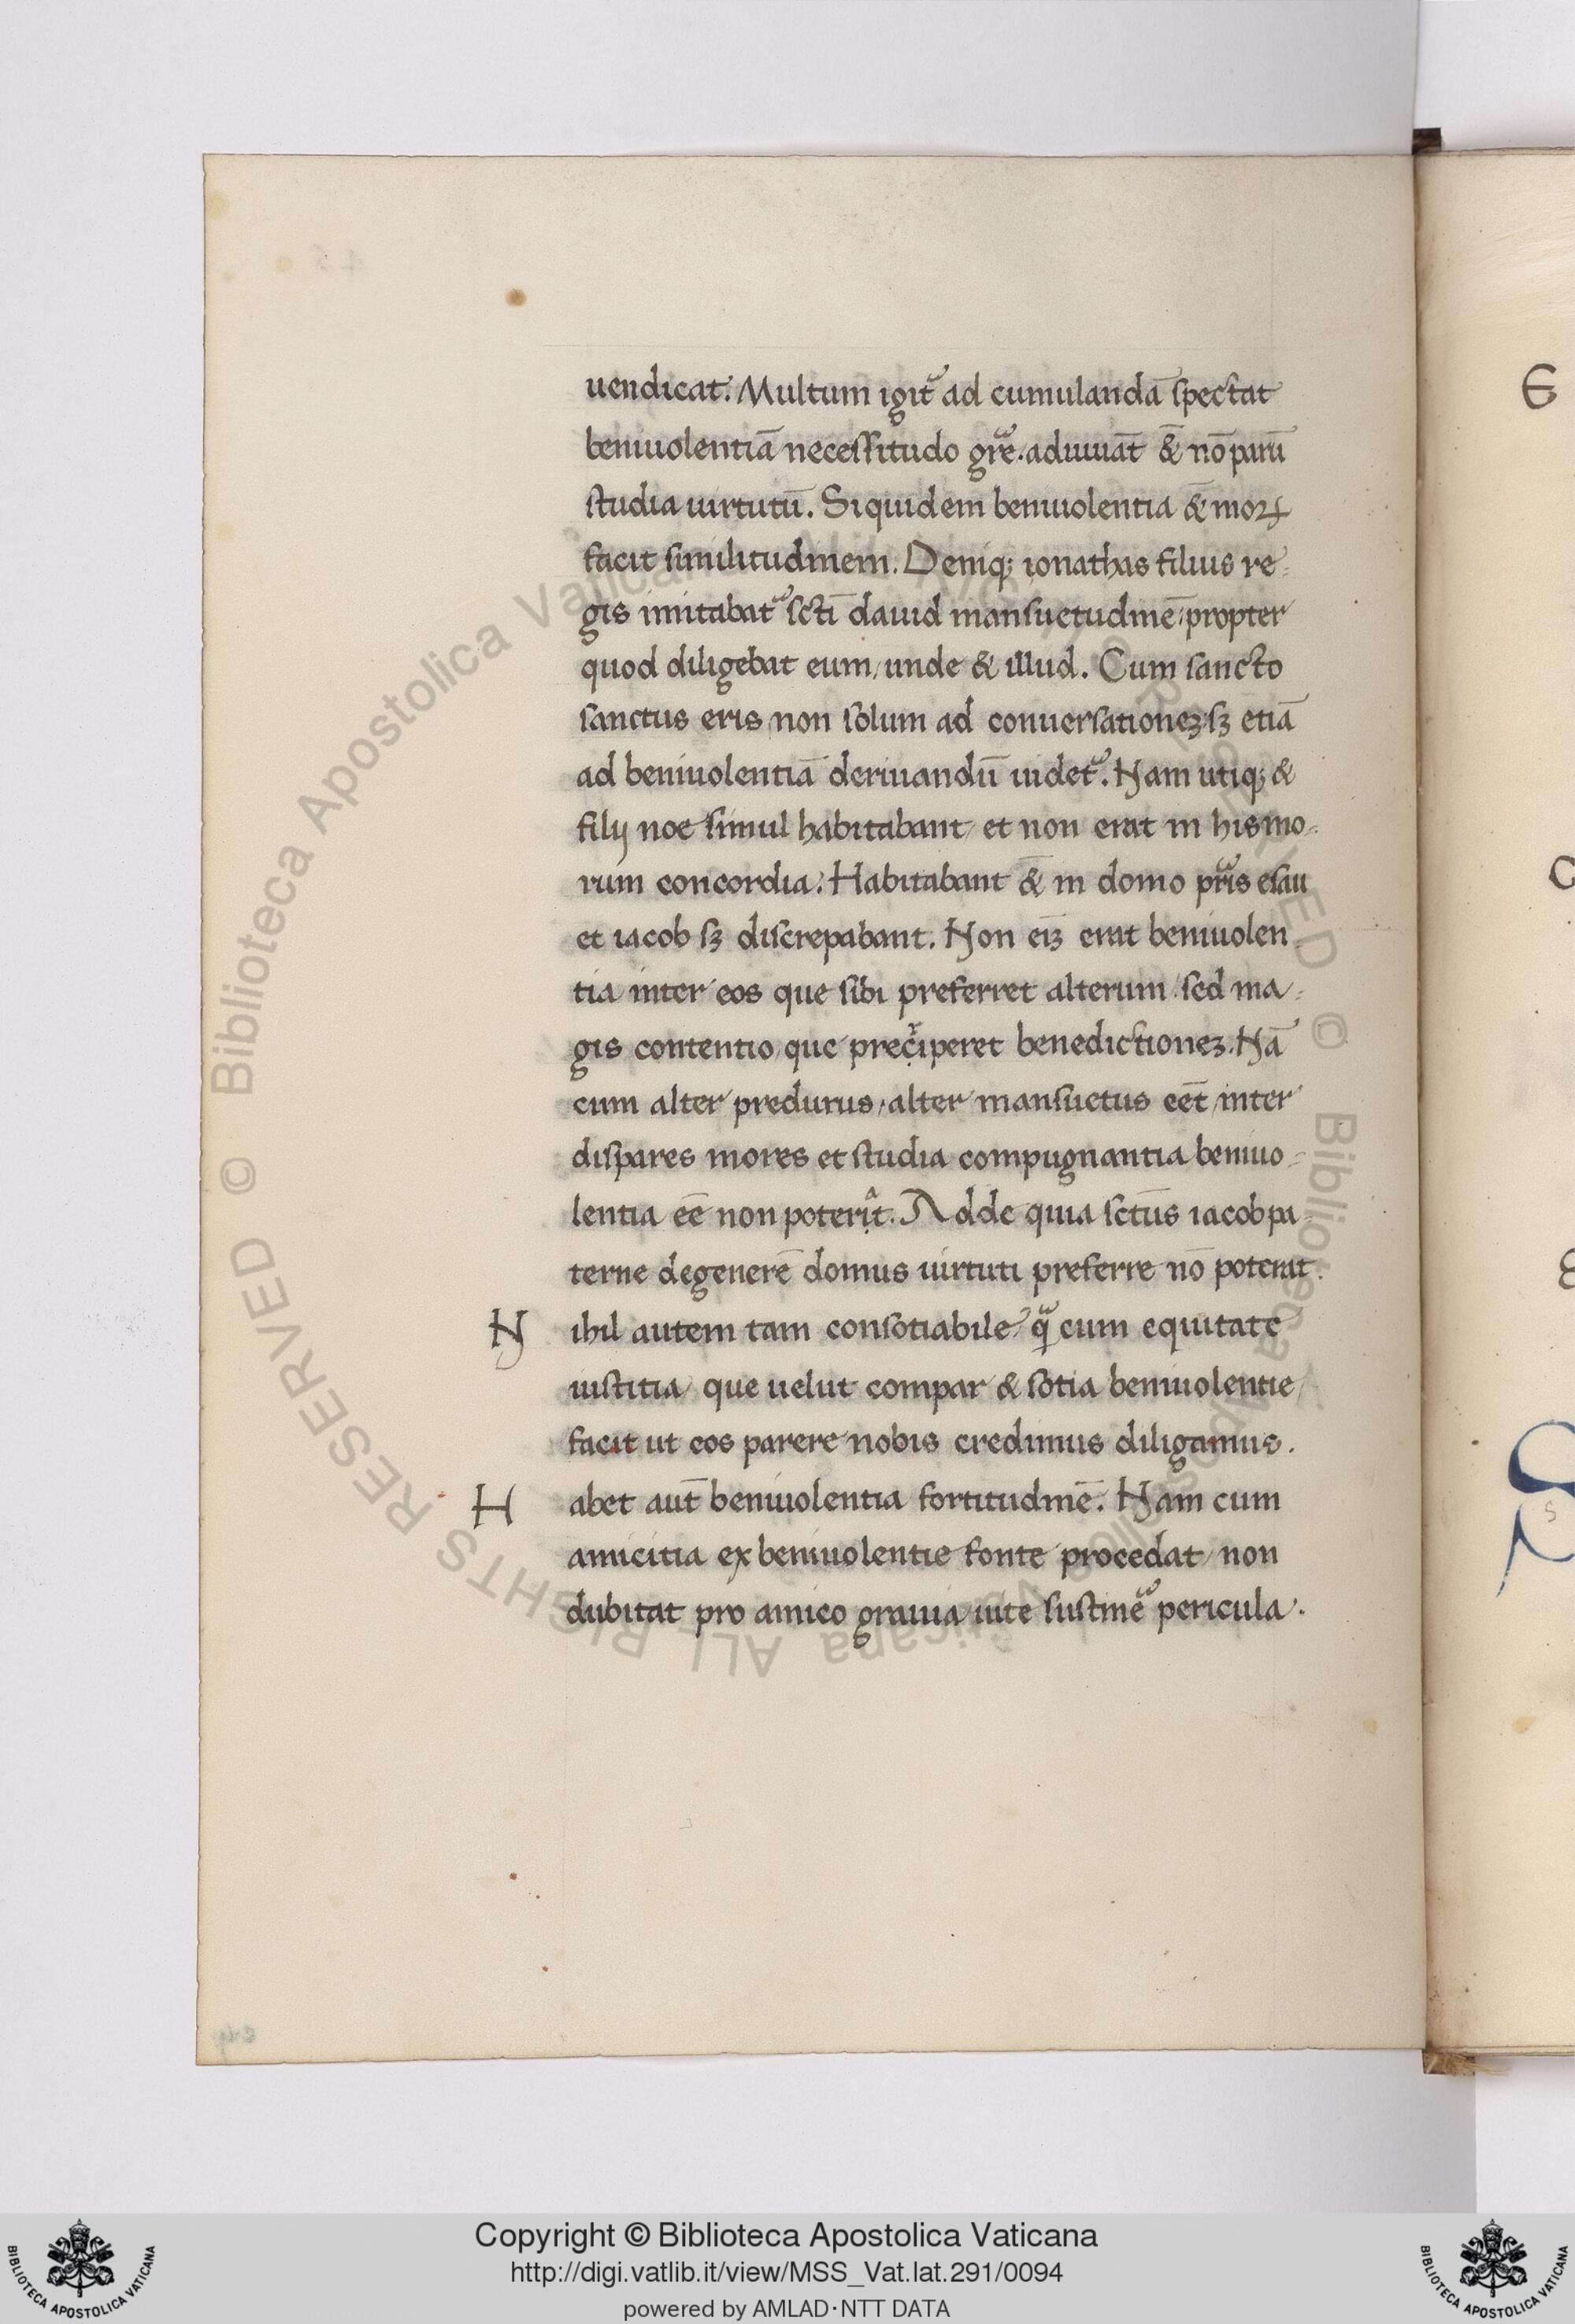 uendicat. Multum igit᷑ ad cumulandā spectat
beniuolentiā necessitudo gr̄e. adiuuāt &̄ nō parū
studia uirtutū. Siquidem beniuolentia &̄ moꝝ
facit similitudinem. Deniq; ionathas filius re=
gis imitabat᷑ sc̄ti dauid mansuetudinē propter
quod diligebat eum, unde & illud. Cum sancto
sanctus eris non solum ad conuersationeʒ sʒ etiā
ad beniuolentiā deriuandū uidet᷑. Nam utiq; &
filij noe simul habitabant et non erat in his mo=
rum concordia. Habitabant &̄ in domo pr̄is esau
et iacob sʒ discrepabant. Non eīʒ erat beniuolen=
tia inter eos que sibi preferret alterum sed ma=
gis contentio que preciperet benedictioneʒ. Nā
cum alter predurus, alter mansuetus eēt inter
dispares mores et studia compugnantia beniuo=
lentia eē non poterat. Adde quia sc̄tus iacob pa=
terne degenerē domus uirtuti preferre nō poterat.
Nihil autem tam consotiabile q̄ cum equitate
iustitia, que uelut compar & sotia beniuolentie
facit ut eos parere nobis credimus diligamus.
Habet aut̄ beniuolentia fortitudinē. Nam cum
amicitia ex beniuolentie fonte procedat non
dubitat pro amico grauia uite sustinē pericula.
© Biblioteca Apostolica Vaticana ALL RIGHTS RESERVED
Copyright © Biblioteca Apostolica Vaticana
http://digi.vatlib.it/view/MSS_Vat.lat.291/0094
powered by AMLAD·NTT DATA
BIBLIOTECA APOSTOLICA VATICANA
BIBLIOTECA APOSTOLICA VATICANA